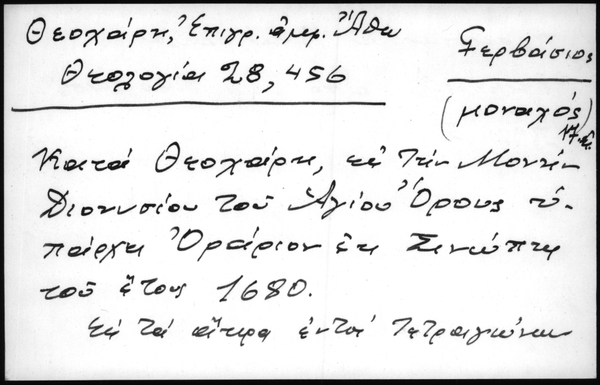 Θεοχάρη, Ἐπιγρ. ἀμφ. Ἄθω
Θεολογία 28, 456
Γερβάσιος
(μοναχός)
17. αἰ.
Κατά Θεοχάρη, εἰς τήν Μονήν
Διονυσίου τοῦ Ἁγίου Ὄρους ὑ-
πάρχει Ὀράριον ἐκ Σινώπης
τοῦ ἔτους 1680.
Εἰς τά ἄκρα ἐντός τετραγώνων